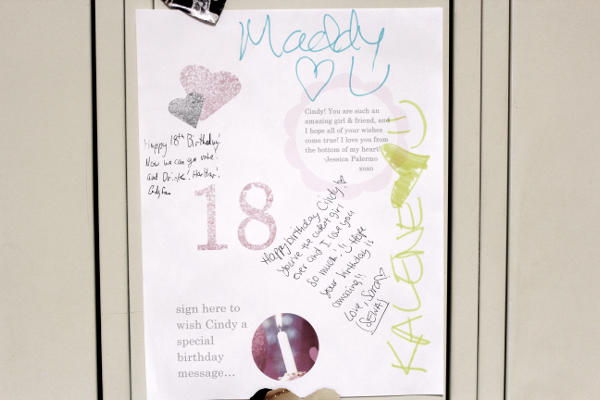 Maddy
Cindy! You are such an
amazing girl & friend, and
I hope all of your wishes
come true! I love you from
the bottom of my heart!
-Jessica Palermo
xoxo
Happy 18th Birthday!
Now we can go vote!
and Drink! Har Har!
18
Happy birthday Cindy!
you're the cutest girl
ever and I love you
so much!! Hope
your birthday is
amazing!!
Love, Sarah
KALENE
sign here to
wish Cindy a
special
birthday
message...